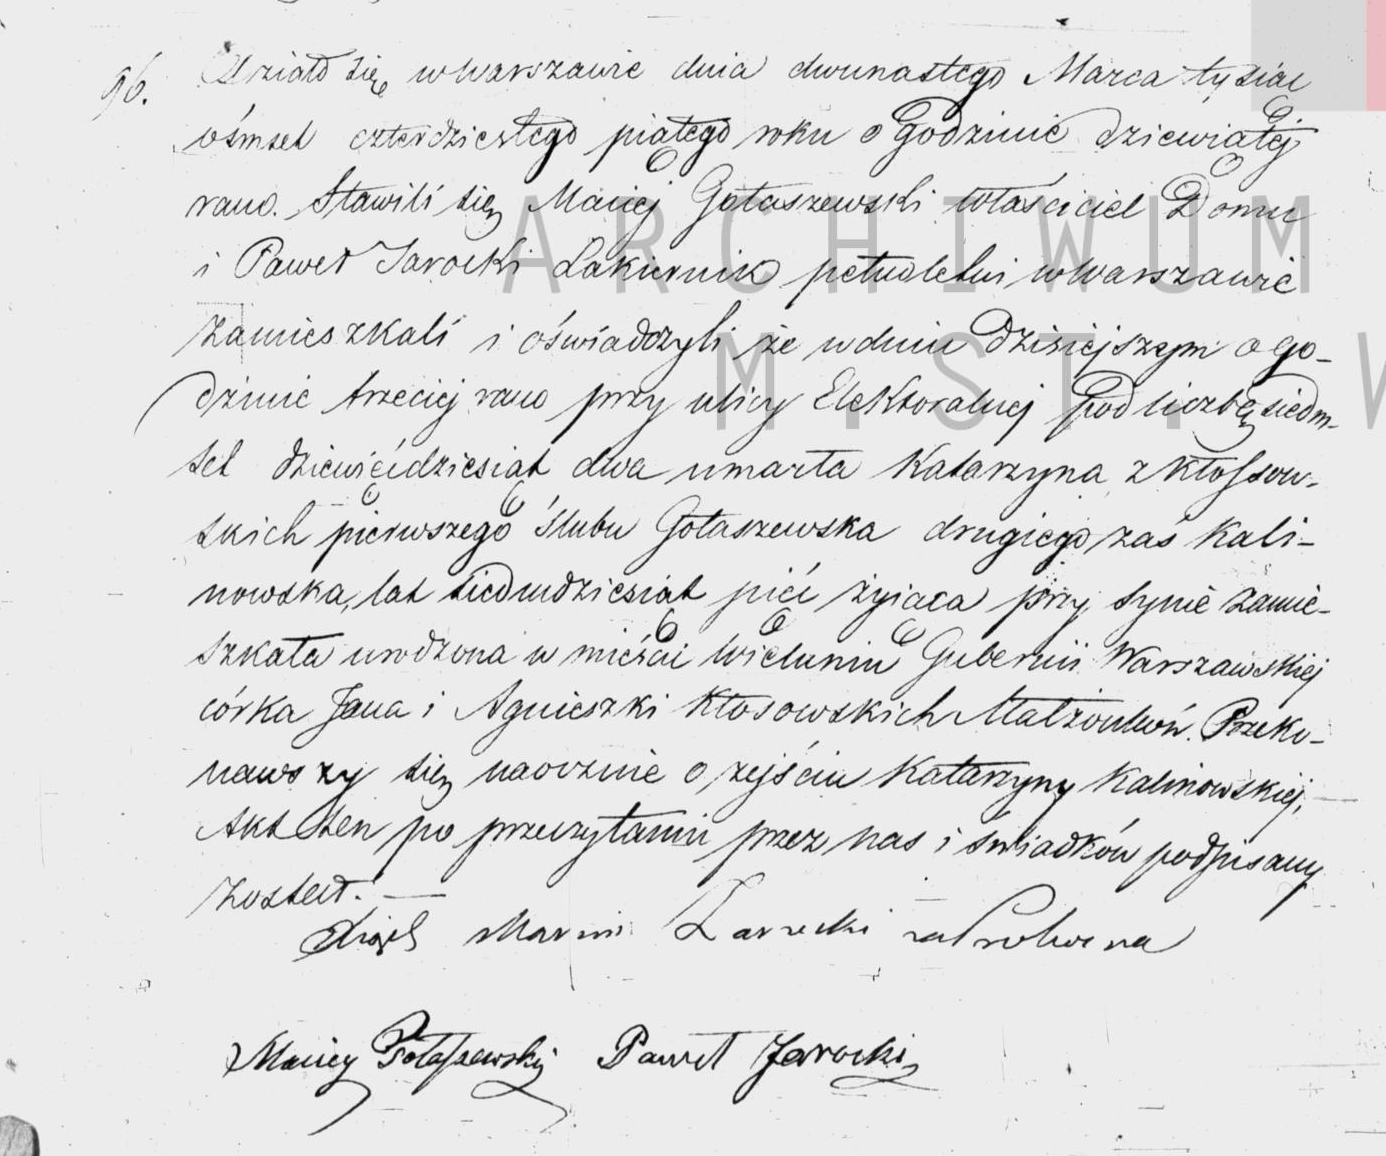 96. Działo się w Warszawie dnia dwunastego Marca tysiąc
ośmset czterdziestego piątego roku o godzinie dziewiątej
rano. Stawili się Maciej Gołaszewski właściciel Domu
i Paweł Jarocki Lakiernik pełnoletni w Warszawie
zamieszkali i oświadczyli że w dniu dzisiejszym o go-
dzinie trzeciej rano przy ulicy Elektoralnej pod liczbą siedm-
set dziewięćdziesiąt dwa umarła Katarzyna z Kłossow-
skich pierwszego ślubu Gołaszewska drugiego zaś Kali-
nowska, lat siedmdziesiąt pięć żyjąca przy synie zamie-
szkała urodzona w mieście Wieluniu Gubernii Warszawskiej
córka Jana i Agnieszki Kłosowskich Małżonków. Przeko-
nawszy się naocznie o zejściu Katarzyny Kalinowskiej,
Akt ten po przeczytaniu przez nas i świadków podpisany
został. —
Marcin
Maciey Gołaszewski Paweł Jarocki
ARCHIWUM
M.ST. W